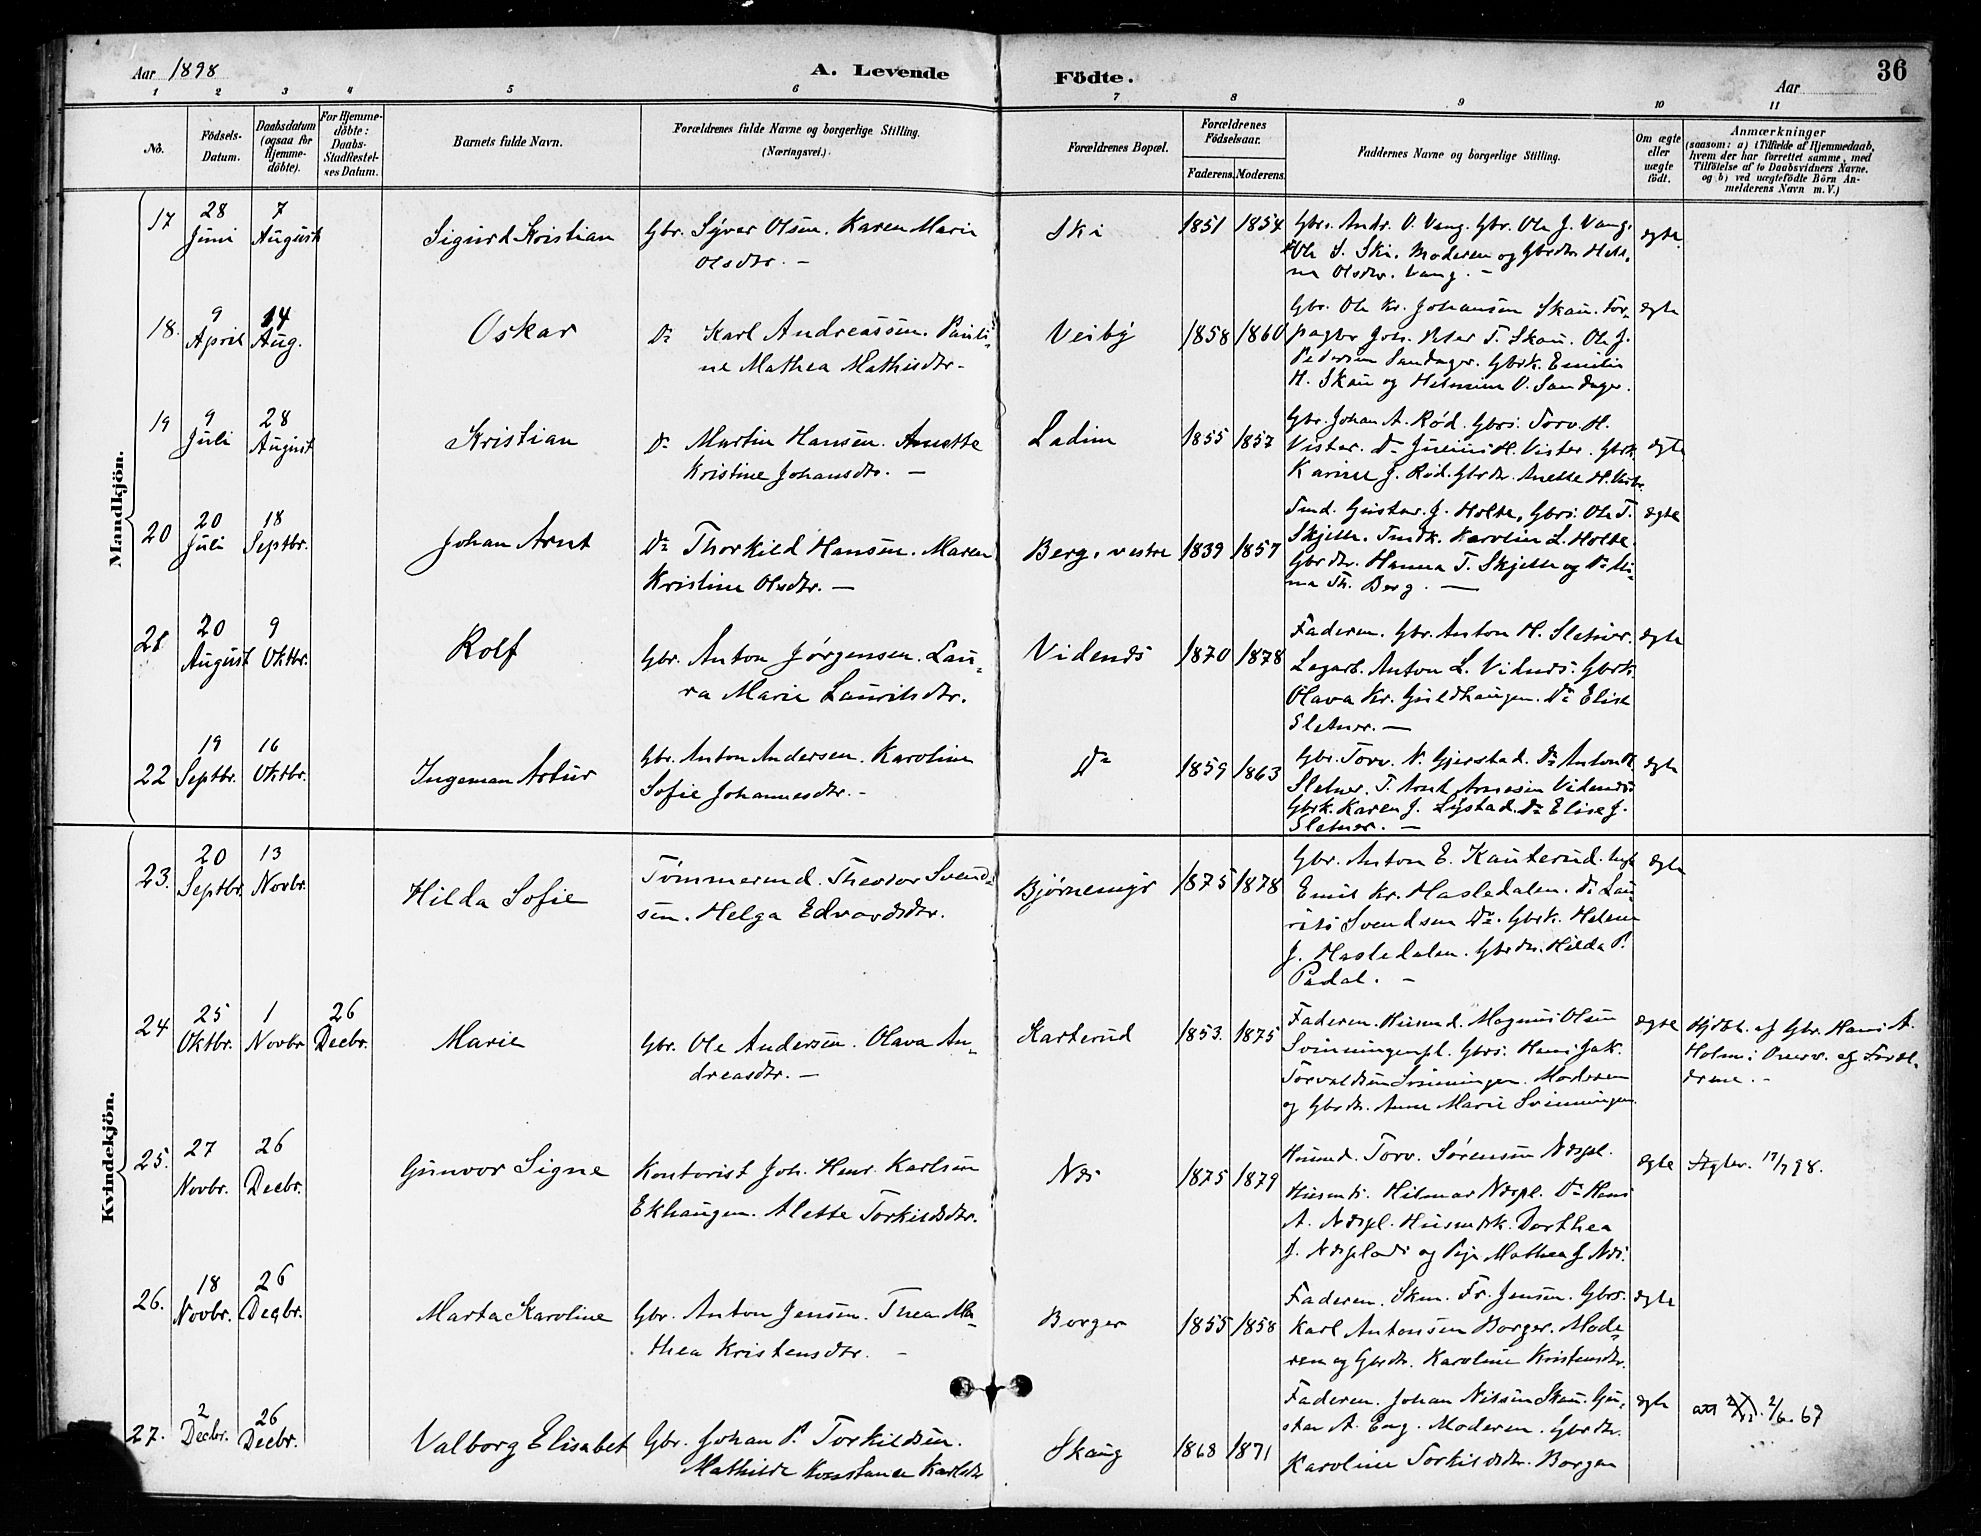 Aar 1898
A. Levende
Födte.
Aar
36
1 2 3 4 5 6 7 8 9 10 11
No.
Födsels-
Datum.
Daabsdatum
(ogsaa for
Hjemme-
döbte).
For Hjemme-
döbte:
Daabs-
Stadfæstel-
ses Datum.
Barnets fulde Navn.
Forældrenes fulde Navne og borgerlige Stilling.
(Næringsvei.)
Forældrenes Bopæl.
Forældrenes
Födselsaar.
Faderens. Moderens.
Faddernes Navne og borgerlige Stilling.
Om ægte
eller
uægte
födt.
Anmærkninger
(saasom: a) i Tilfælde af Hjemmedaab,
hvem der har forrettet samme, med
Tilföielse af to Daabsvidners Navne.
og b) ved uægtefödte Börn An-
melderens Navn m. V.)
Mandkjön.
17
28
Juni
7
August
Sigurd Kristian
Gbr. Syver Olsen. Karen Marie
Olsdtr. —
Ski
1851
1854
Gbr. Andr. O. Vang. Gbr. Ole J. Vang.
Ole S. Ski. Moderen og Gbrdtr. Hele-
ne Olsdtr. Vang. —
ægte.
18.
9
April
14
Aug.
Oskar
Do Karl Andreassen. Pauli-
ne Mathea Mathisdtr.
Veiby
1858
1860
Gbr. Ole Kr. Johansen Skau. For-
pagter Joh. Peter T. Skau. Ole J.
Pedersen Sandager. Gbrk. Emilie
H. Skau og Helmine O. Sandager.
ægte
19
9
Juli
28
August
Kristian
Do Martin Hansen. Anette
Kristine Johansdtr. —
Ladim
1855
1857
Gbr. Johan A. Rød. Gbrs. Torv. H.
Vister. Do Julius H. Vister. Gbrk.
Karine J. Rød. Gbrdtr. Anette H. Vister.
ægte
20
20
Juli
18
Septbr.
Johan Arnt
Do Thorkild Hansen. Maren
Kristine Olsdtr. —
Berg, vestre
1839
1857
Smd. Gustav J. Holte, Gbrs. Ole T.
Skjelle. Smdk. Karoline L. Holte.
Gbrdtr. Hanna T. Skjelle og Do Mi-
na Th. Berg. —
ægte
21
20
August
9
Oktbr.
Rolf
Gbr. Anton Jørgensen. Lau-
ra Marie Lauritsdtr.
Videnes
1870
1878
Faderen. Gbr. Anton H. Sletner.
Legarb. Anton L. Videnes. Gbrk.
Olava Kr. Guldhaugen. Do Elise
Sletner. —
ægte
22
19
Septbr.
16
Oktbr.
Ingeman Artur
Gbr. Anton Andersen. Karoline
Sofie Johannesdtr. —
Do
1859
1863
Gbr. Torv. N. Gjerstad. Do Anton H.
Sletner. T. Arnt Arnesen Videnes.
Gbrk. Karen J. Lystad. Do Elise J.
Sletner. —
ægte
Kvindekjön.
23.
20
Septbr.
13
Novbr.
Hilda Sofie
Tømmermd. Theodor Svend-
sen. Helga Edvardsdtr.
Bjørnemyr
1875
1878
Gbr. Anton E. Kauterud. Ungk.
Emil Kr. Hasledalen. Do Lau-
rits Svendsen Do. Gbrk. Helene
J. Hasledalen. Gbrdtr. Hilda P.
Padal. —
ægte
24
25
Oktbr.
1
Novbr
26
Decbr.
Marie
Gbr. Ole Andersen. Olava An-
dreasdtr. —
Karterud
1853.
1875
Faderen. Husmd. Magnus Olsen
Svinningenpl. Gbrs. Hans Jak.
Torvaldsen Svinningen. Moderen
og Gbrdtr. Anne Marie Svinningen.
ægte
Hjdbt. af Gbr. Hans A.
Holm i Overv. af Foræl-
drene. —
25.
27
Novbr.
26
Decbr.
Gunvor Signe
Kontorist Joh. Henr. Karlsen
Ekhaugen. Alette Torkildsdtr.
Næs
1875
1879
Husmd. Torv. Sørensen Næspl.
Husmds. Hilmar Næspl. Do Hans
A. Næspl. Husmdk. Dorthea
J. Næsplads og Pige Mathea J. Næs.
ægte
17/7 98.
26.
18
Novbr.
26
Decbr.
Marta Karoline
Gbr. Anton Jensen. Thea Ma-
thea Kristensdtr. —
Borger
1855
1858
Faderen. Skm. Fr. Jensen. Gbrs.
Karl Antonsen Borger. Mode-
ren og Gbrdtr. Karoline Kristensdtr.
ægte
27.
2
Decbr.
26
Decbr.
Valborg Elisabet
Gbr. Johan P. Torkildsen.
Mathilde Konstance Karlsdtr
Skaug
1868
1871
Faderen. Johan Nilsen Skau. Gu-
stav A. Eng. Moderen. Gbrdtr.
Karoline Torkildsdtr. Borger
ægte
att 2/6. 67